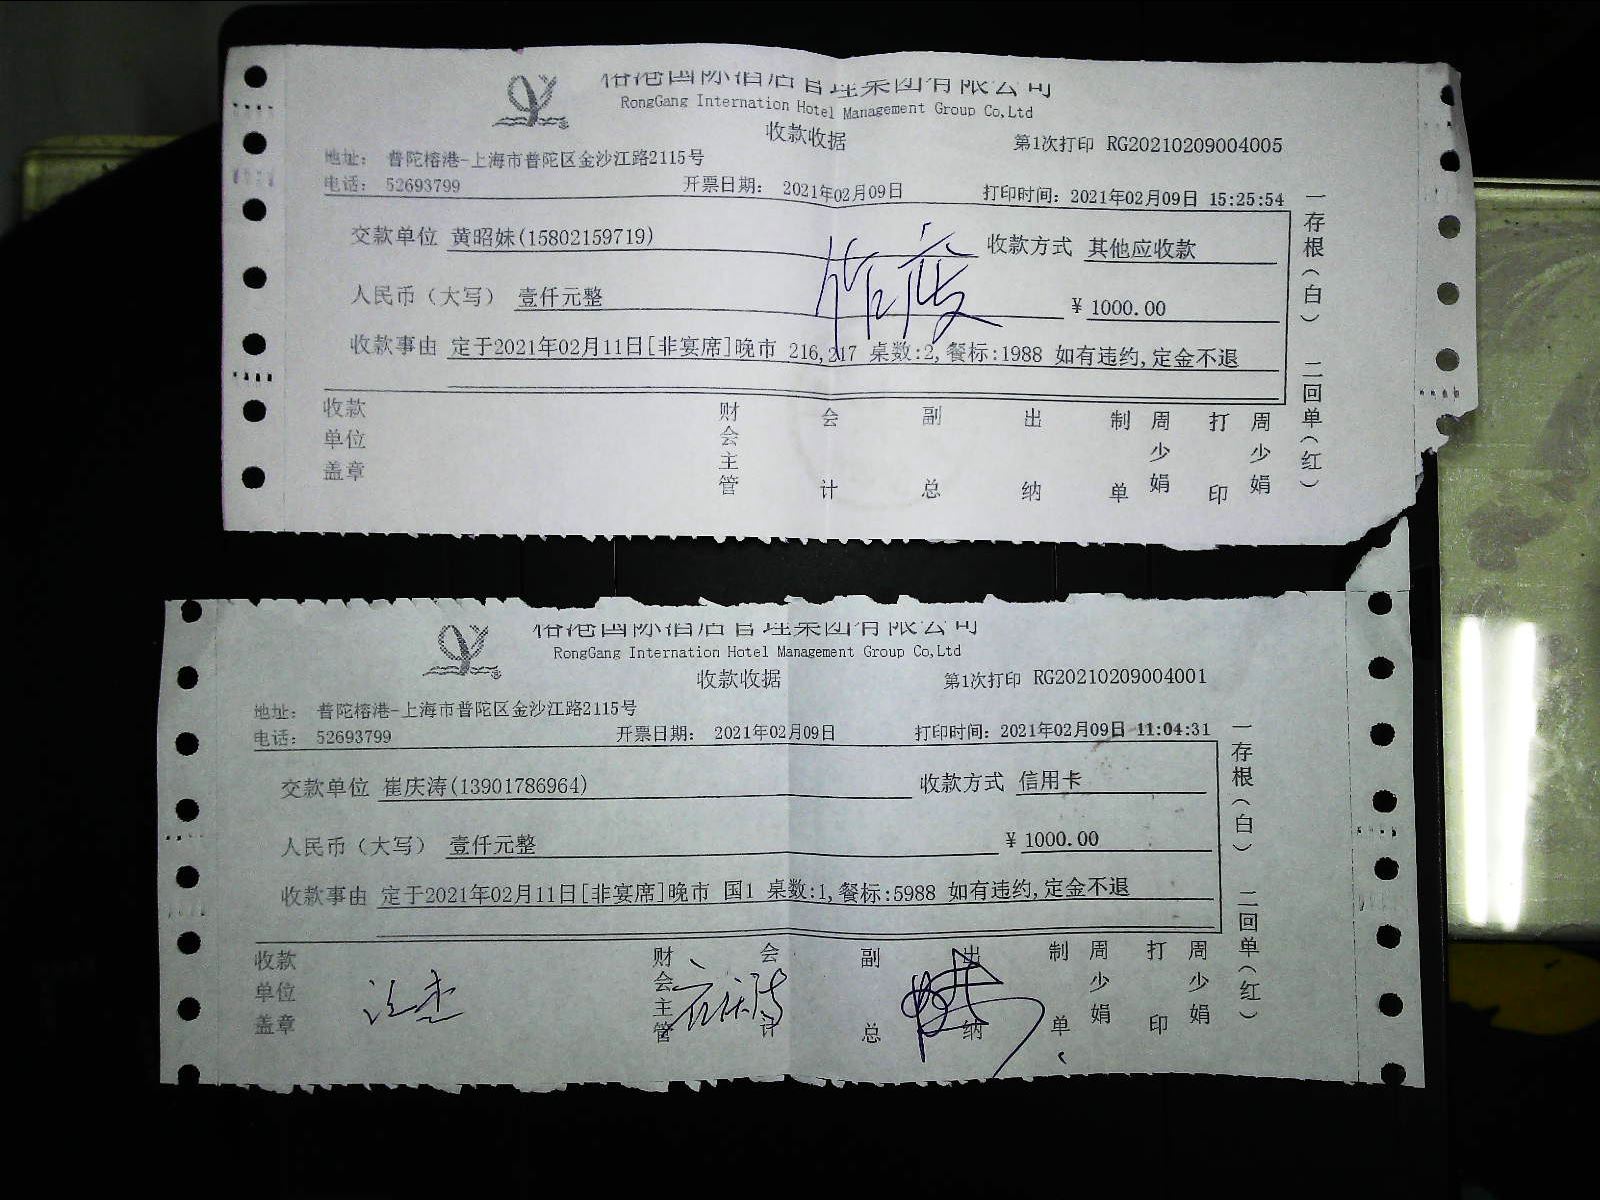 榕港国际酒店管理集团有限公司
RongGang Internation Hotel Management Group Co,Ltd
收款收据
第1次打印 RG20210209004005
地址： 普陀榕港-上海市普陀区金沙江路2115号
电话： 52693799 开票日期： 2021年02月09日 打印时间：2021年02月09日 15:25:54
交款单位 黄昭妹(15802159719) 收款方式 其他应收款
人民币（大写） 壹仟元整 ￥1000.00
收款事由 定于2021年02月11日[非宴席]晚市 216,217 桌数:2,餐标:1988 如有违约,定金不退
收款单位盖章 财会主管 会计 副总 出纳 制单 周少娟 打印 周少娟
一存根（白） 二回单（红）
作废
榕港国际酒店管理集团有限公司
RongGang Internation Hotel Management Group Co,Ltd
收款收据
第1次打印 RG20210209004001
地址： 普陀榕港-上海市普陀区金沙江路2115号
电话： 52693799 开票日期： 2021年02月09日 打印时间：2021年02月09日 11:04:31
交款单位 崔庆涛(13901786964) 收款方式 信用卡
人民币（大写） 壹仟元整 ￥1000.00
收款事由 定于2021年02月11日[非宴席]晚市 国1 桌数:1,餐标:5988 如有违约,定金不退
收款单位盖章 财会主管 会计 副总 出纳 制单 周少娟 打印 周少娟
一存根（白） 二回单（红）